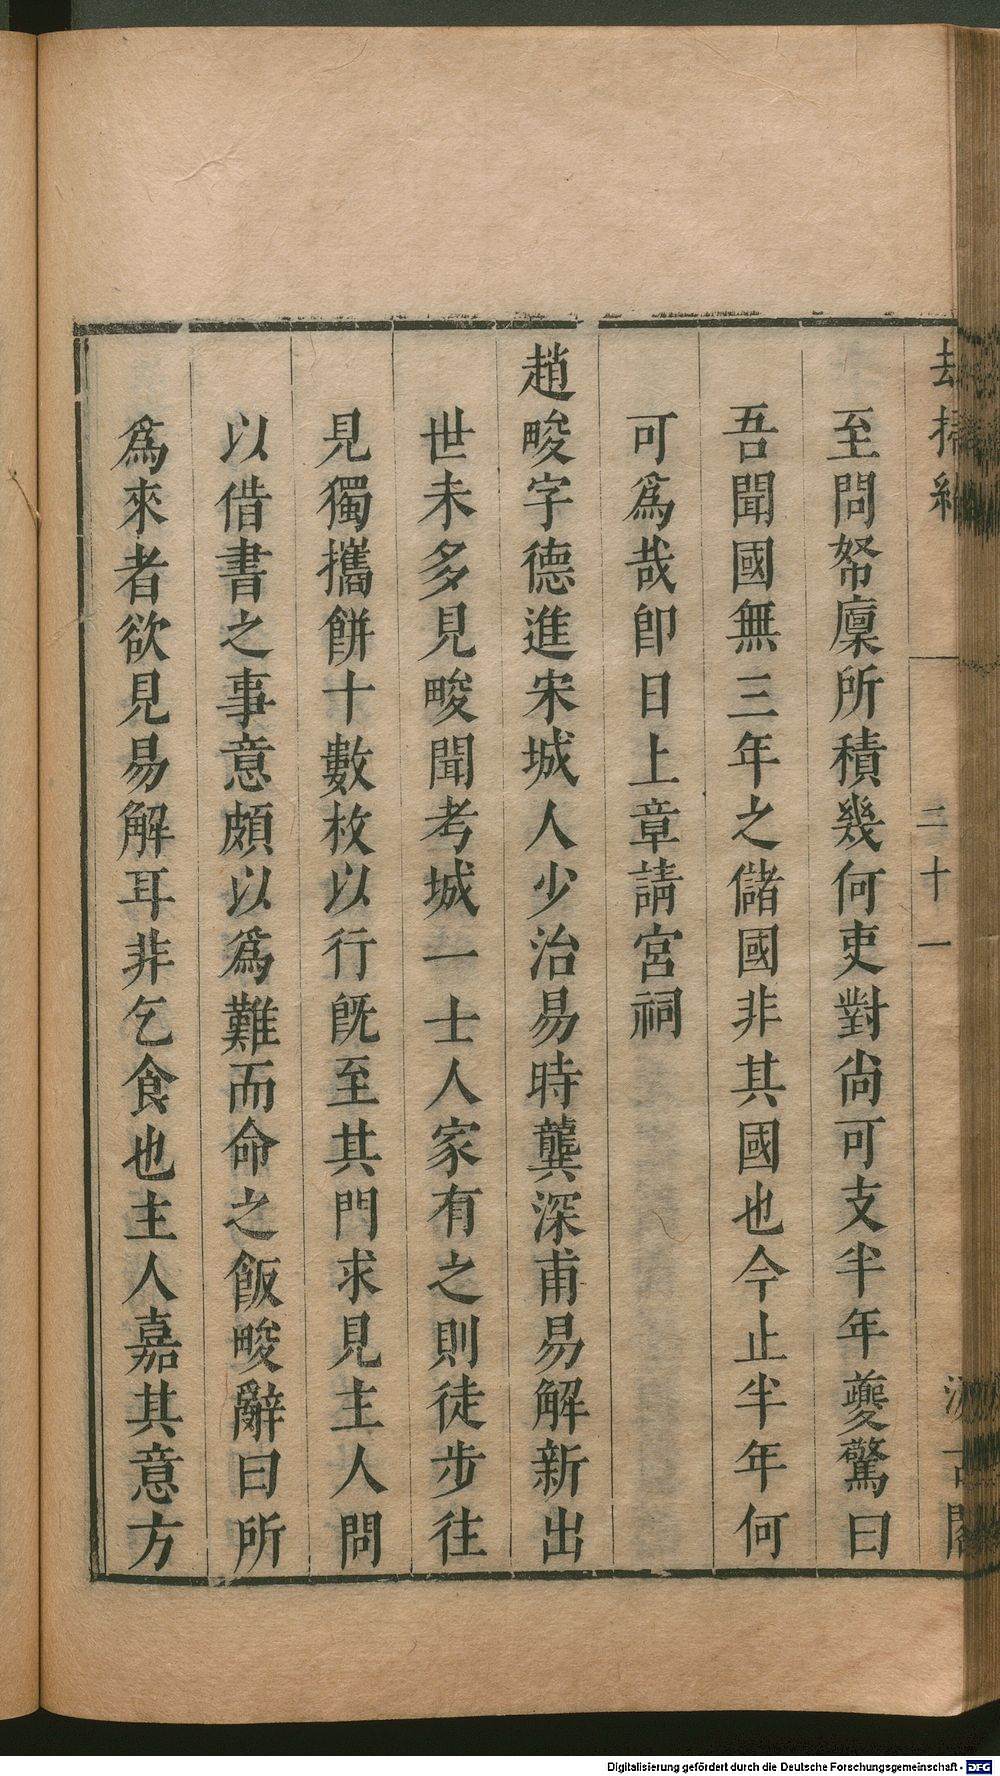 却掃編 二十一 汲古閣
至問帑廩所積幾何吏對尚可支半年夔驚曰
吾聞國無三年之儲國非其國也今止半年何
可爲哉卽日上章請宮祠
趙畯字德進宋城人少治易時龔深甫易解新出
世未多見畯聞考城一士人家有之則徒步往
見獨攜餅十數枚以行旣至其門求見主人問
以借書之事意頗以爲難而命之飯畯辭曰所
爲來者欲見易解耳非乞食也主人嘉其意方
Digitalisierung gefördert durch die Deutsche Forschungsgemeinschaft - DFG